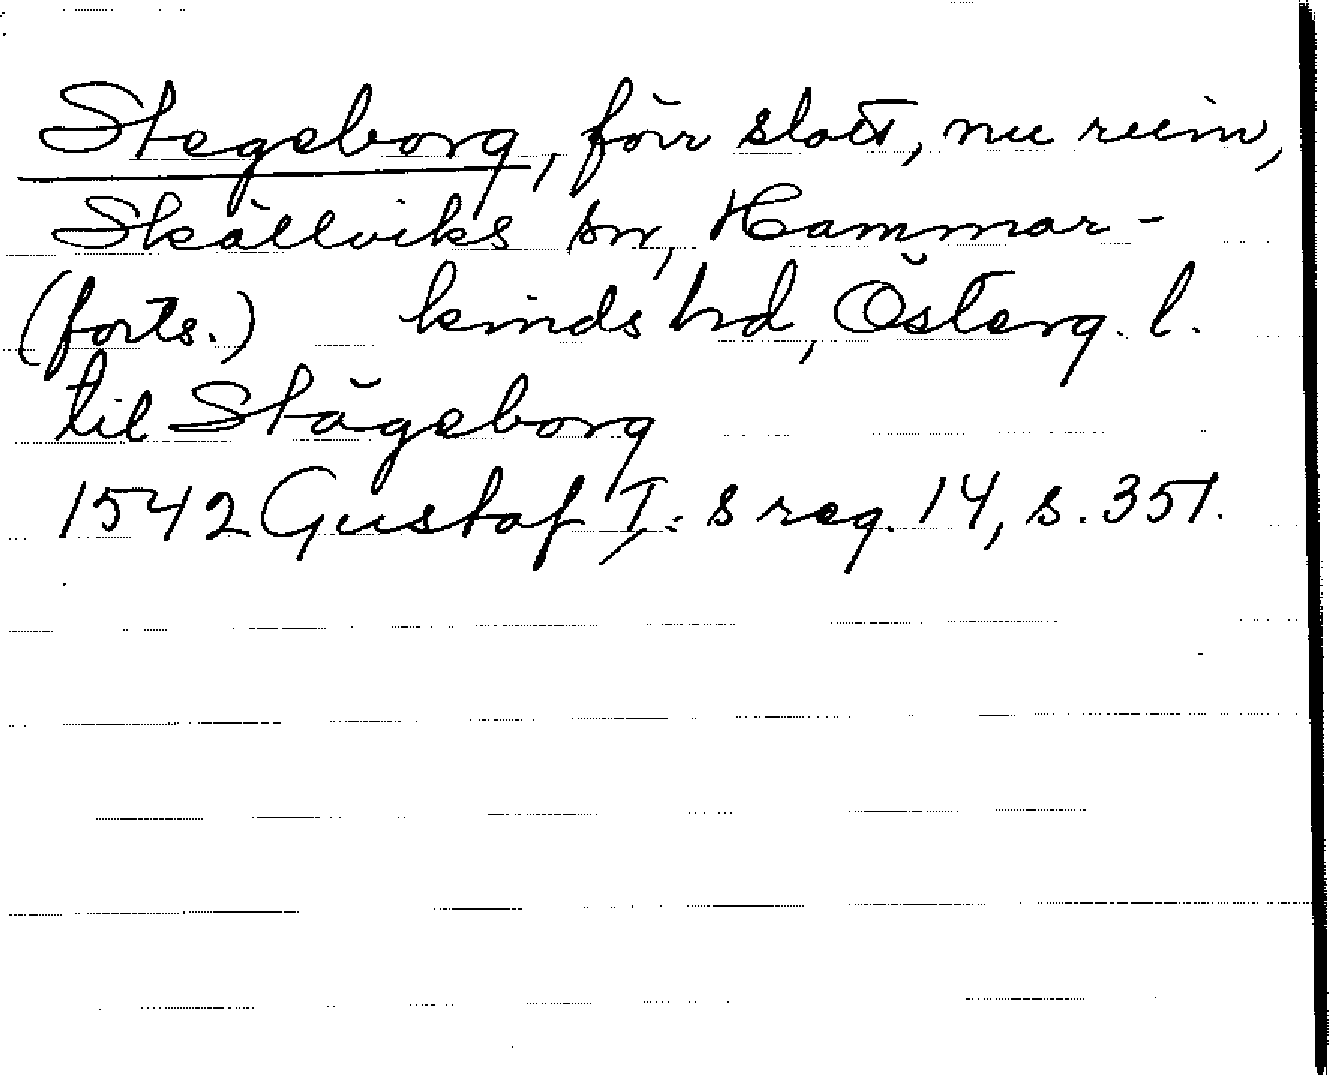 Stegeborg, förr slott, nu ruin,
Skällviks sn, Hammar-
(forts.) kinds hd, Österg. l.
til Stägeborg
1542 Gustaf I:s reg. 14, s. 351.